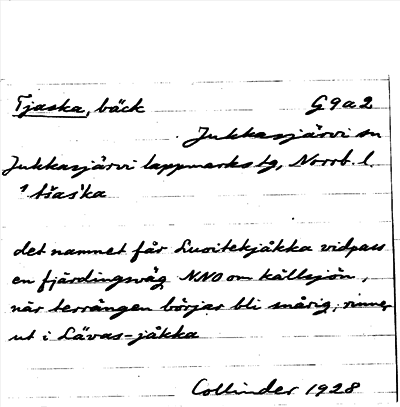 Tjaska, bäck G9a2
Jukkasjärvi sn
Jukkasjärvi lappmarks tg, Norrb. l.
det namnet får Luoitekjåkka vidpass
en fjärdingsväg NNO om källsjön,
när terrängen börjar bli snårig; rinner
ut i Lävas-jåkka
Collinder 1928